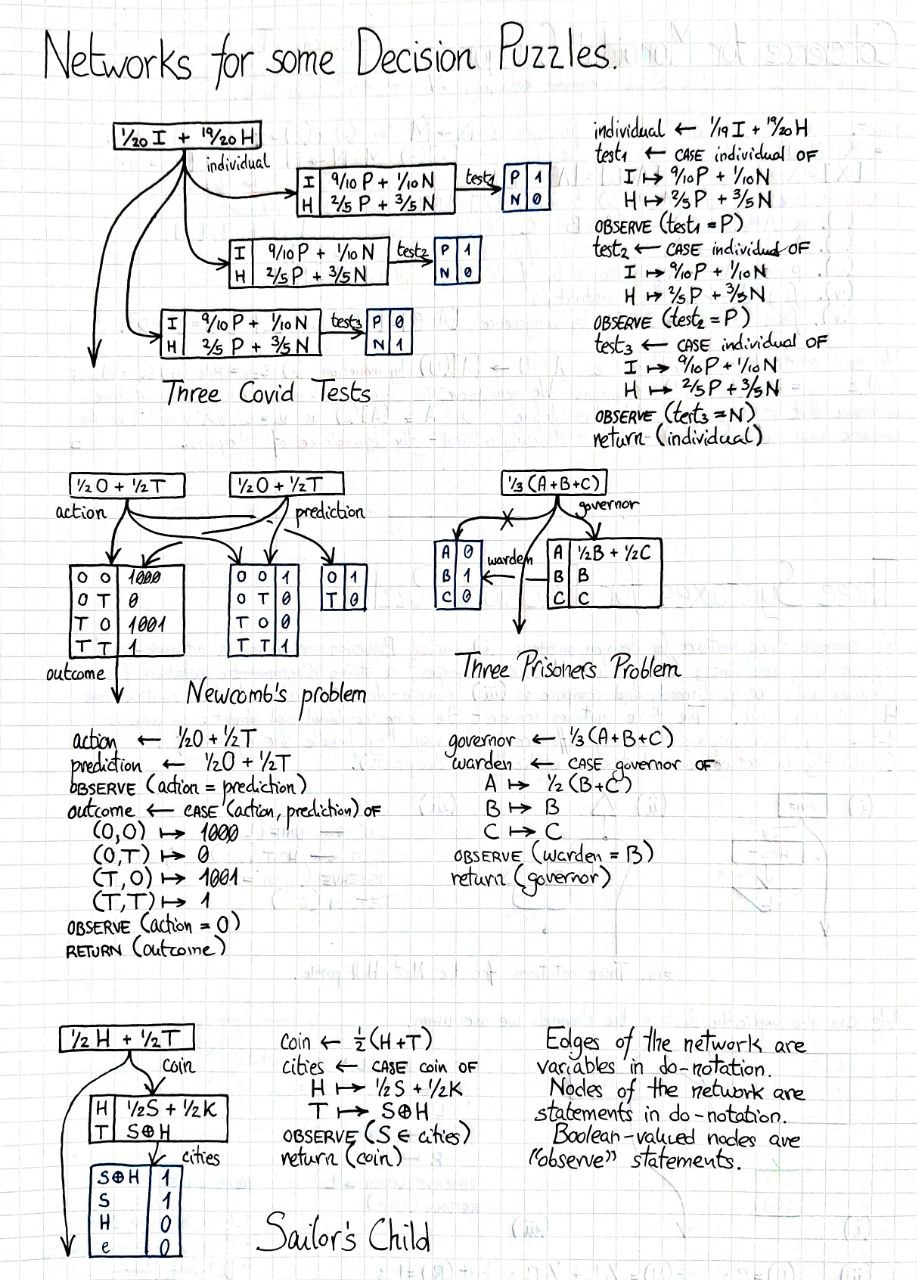 Networks for some Decision Puzzles.
1/20 I + 19/20 H
individual
I 9/10 P + 1/10 N
H 2/5 P + 3/5 N
test1
P 1
N 0
I 9/10 P + 1/10 N
H 2/5 P + 3/5 N
test2
P 1
N 0
I 9/10 P + 1/10 N
H 2/5 P + 3/5 N
test3
P 0
N 1
Three Covid Tests
individual ← 1/19 I + 19/20 H
test1 ← CASE individual OF
I ↦ 9/10 P + 1/10 N
H ↦ 2/5 P + 3/5 N
OBSERVE (test1 = P)
test2 ← CASE individual OF
I ↦ 9/10 P + 1/10 N
H ↦ 2/5 P + 3/5 N
OBSERVE (test2 = P)
test3 ← CASE individual OF
I ↦ 9/10 P + 1/10 N
H ↦ 2/5 P + 3/5 N
OBSERVE (test3 = N)
return (individual)
1/2 O + 1/2 T
1/2 O + 1/2 T
action
prediction
O O 1000
O T 0
T O 1001
T T 1
O O 1
O T 0
T O 0
T T 1
O 1
T 0
outcome
Newcomb's problem
action ← 1/2 O + 1/2 T
prediction ← 1/2 O + 1/2 T
OBSERVE (action = prediction)
outcome ← CASE (action, prediction) OF
(O,O) ↦ 1000
(O,T) ↦ 0
(T,O) ↦ 1001
(T,T) ↦ 1
OBSERVE (action = O)
RETURN (outcome)
1/3 (A+B+C)
governor
A 0
B 1
C 0
warden
A 1/2 B + 1/2 C
B B
C C
Three Prisoners Problem
governor ← 1/3 (A+B+C)
warden ← CASE governor OF
A ↦ 1/2 (B+C)
B ↦ B
C ↦ C
OBSERVE (warden = B)
return (governor)
1/2 H + 1/2 T
coin
H 1/2 S + 1/2 K
T S⊕H
cities
S⊕H 1
S 1
H 0
e 0
Sailor's Child
coin ← 1/2 (H+T)
cities ← CASE coin OF
H ↦ 1/2 S + 1/2 K
T ↦ S⊕H
OBSERVE (S ∈ cities)
return (coin)
Edges of the network are
variables in do-notation.
Nodes of the network are
statements in do-notation.
Boolean-valued nodes are
"observe" statements.